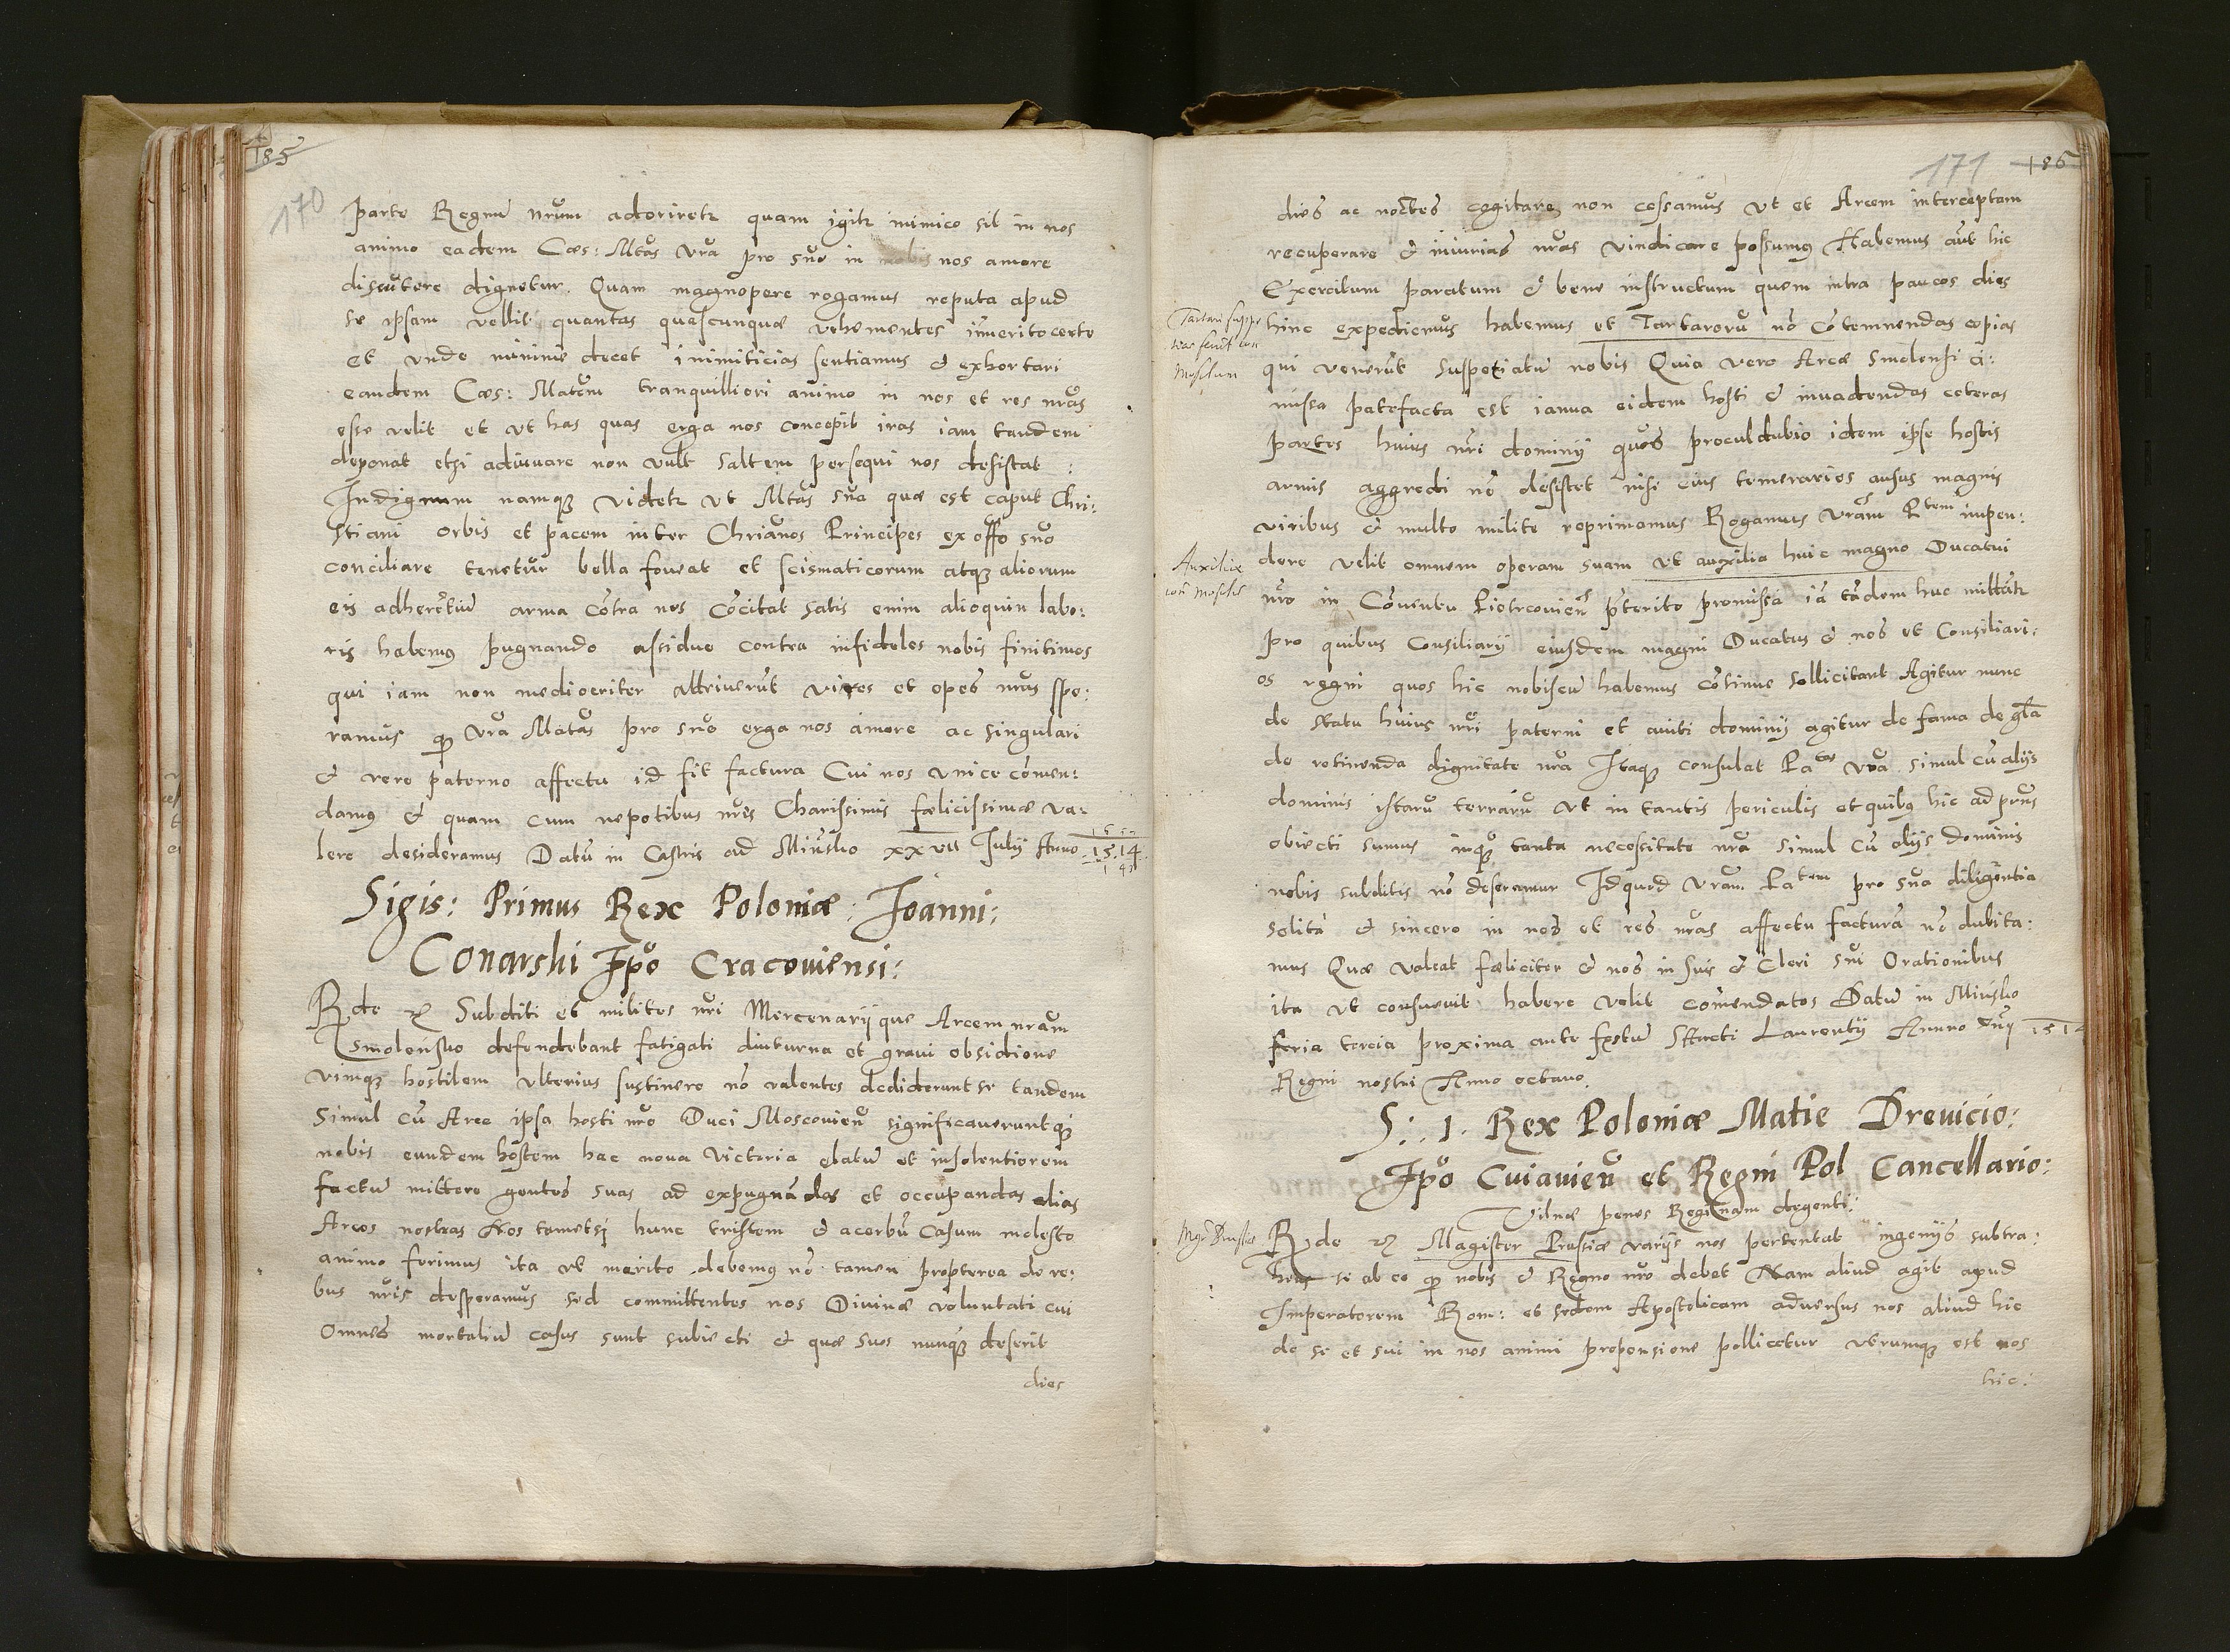 185
170
parte Regnũ nr̃um adorireťr quam igiťr inimico sit in nos
animo eadem Caes: Mtas vr̃a pro suo in nobis nos amore
discutere dignetur. Quam magnopere rogamus reputa apud
se ipsam vellit quantas quascunquae vehementes im̃erito certe
et unde minime decet inimiticias sentiamus & exhortari
eandem Caes: Matem tranquilliori animo in nos et res nr̃as
esse velit et ut has quas erga nos concepit iras iam tandem
deponat etsi adiuuare non vult saltem persequi nos desistat :
Indignum namq3 videťr ut Mtas sua quae est caput Chri:
stiani orbis et pacem inter Chr̃ianos Principes ex off̃o suo
conciliare tenetur bella foueat et scismaticorum atq3 aliorum
eis adherẽtiũ arma cõtra nos cõcitat satis enim alioquin labo:
ris habemus pugnando assidue contra infideles nobis finitimos
qui iam non mediocriter attriuerũt vires et opes nr̃as spe:
ramus qp̃ vr̃a Matas pro suo erga nos amore ac singulari
& vere paterno affectu id fit factura Cui nos unice com̃en:
damus & quam cum nepotibus nr̃is Charissimis faelicissimae va-
lere desideramus Datũ in Castris ad Mińsko xxvii Julij Anno 1514
Sigis: Primus Rex Poloniae: Joanni:
Conarski Ep̃o Cracouiensi:
Rde etc Subditi et milites nr̃i Mercenarij que Arcem nr̃am
Smoleńsko defendebant fatigati diuturna et graui obsidione
vimq3 hostilem ulterius sustinere nõ valentes dediderunt se tandem
Simul cũ Arce ipsa hosti nr̃o Duci Moscouieñ significaueruntq3
nobis eundem hostem hac noua victoria elatũ et insolentiorem
factũ mittere gentes suas ad expugnãdas et occupandas alias
Arces nostras Nos tametsi hunc tristem & acerbũ casum molesto
animo ferimus ita ut merito debemus nõ tamen propterea de re:
bus nr̃is desperamus sed committentes nos Diuinae voluntati cui
Omnes mortaliũ casus sunt subiecti & quae suos nunq3 deserit
dies
171 186
dies ac noctes cogitare non cessamus ut et Arcem interceptam
recuperare & iniurias nr̃as vindicare possumus Habemus aũt hic
Exercitum paratum & bene instructum quem intra paucos dies
hinc expedienus habemus et Tartarorũ nõ cõtemnendas copias
qui venerũt suspetiatũ nobis Quia vero Arce Smolensi a:
missa patefacta est ianua eidem hosti & inuadendas ceteras
partes huius nr̃i dominij quos proculdubio idem ipse hostis
armis aggredi nõ desistet nisi eius temerarios ausus magnis
viribus & multo milite reprimamus Rogamus vr̃am Ptem impen:
dere velit omnem operam suam ut auxilia huic magno Ducatui
nr̃o in Cõuentu Piotrcouieñs p̃terito promissa iã tãdem huc mittãťr
pro quibus Consiliarij eiusdem magni Ducatus & nos et Consiliari:
os regni quos hic nobiscũ habemus cõtinue sollicitant Agitur nunc
de statu huius nr̃i paterni et auiti dominij agitur de fama de gl̃a
de retinenda dignitate nr̃a Itaq3 consulat Patas vr̃a simul cũ alijs
dominis istarũ terrarũ ut in tantis periculis et quibus hic ad prñs
obiecti sumus inq3 tanta necessitate nr̃a simul cũ alijs dominis
nobis subditis nõ deseramur Id quod vr̃am Patem pro sua diligentia
solita & sincero in nos et res nr̃as affectu facturã nõ dubita:
mus Quae valeat faeliciter & nos in suis & Cleri sui Orationibus
ita ut consueuit habere velit com̃endatos Datũ in Mińsko
feria tercia proxima ante festum Sancti Laurentij Anno Dñj 151
Regni nostri Anno octauo.
Tartari suppe
Moschum
Auxilia
con Moschos
S: 1. Rex Poloniae Matie Dreuicio:
Ep̃o Cuiauieñ et Regni Pol Cancellario:
Vilnae penes Reginam degenti:
Mgr Prussiae
Rde etc Magister Prussiae varijs nos pertentat ingenijs subtra:
here se ab eo qp̃ nobis & Regno nr̃o debet Nam aliud agit apud
Imperatorem Rom: et sedem Apostolicam aduersus nos aliud hic
de se et sui in nos animi propensione pollicetur utrumq3 est nos
hic: